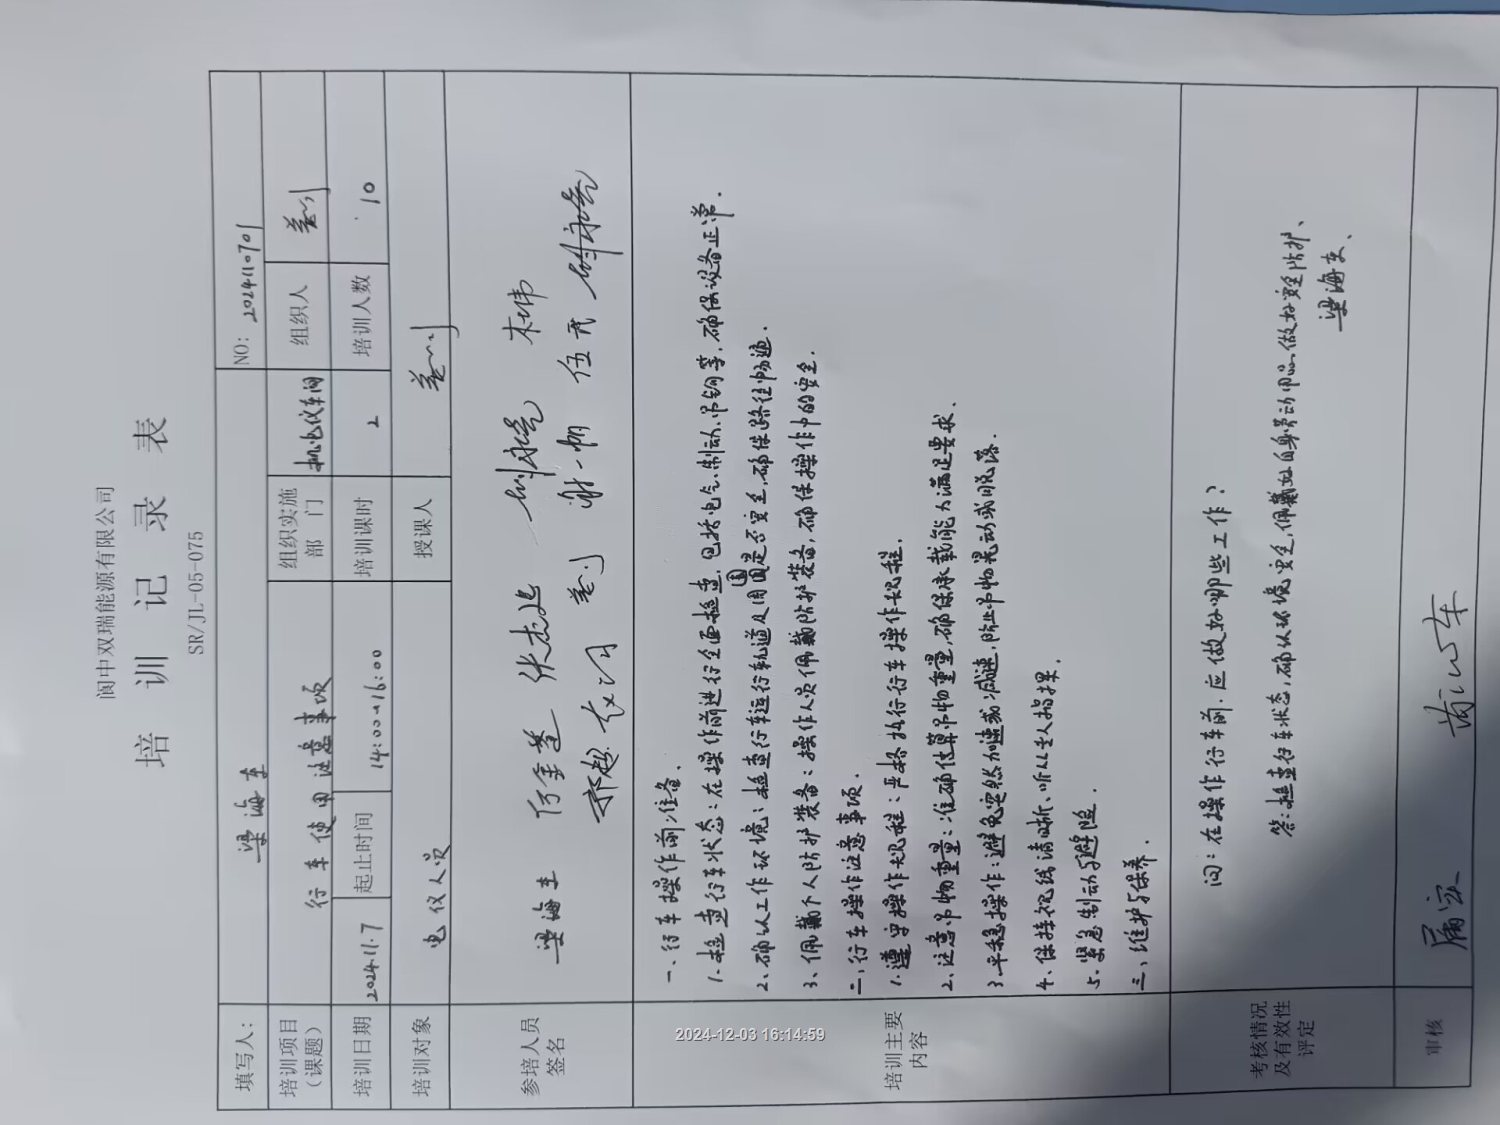 阆中双瑞能源有限公司
培 训 记 录 表
SR/JL-05-075
填写人： 梁海车 NO: 2024110701
培训项目（课题） 行车使用注意事项 组织实施部门 机电仪车间 组织人
培训日期 2024.11.7 起止时间 14:00~16:00 培训课时 2 培训人数 10
培训对象 电仪人员 授课人
参培人员签名
梁海车
培训主要内容
一、行车操作前准备.
1.检查行车状态:在操作前进行全面检查,包括电气、制动、吊钩等,确保设备正常.
2、确认工作环境:检查行车运行轨道及周围是否安全,确保路径畅通.
3、佩戴个人防护装备:操作人员佩戴防护装备,确保操作中的安全.
二、行车操作注意事项.
1.遵守操作规程:严格执行行车操作规程.
2、注意吊物重量:准确估算吊物重量,确保承载能力满足要求.
3.平稳操作:避免突然加速或减速,防止吊物晃动或脱落.
4、保持视线清晰、听从专人指挥.
5.紧急制动与避险.
三、维护与保养.
考核情况及有效性评定
问:在操作行车前.应做好哪些工作?
答:检查行车状态,确认环境安全,佩戴好自身劳动用品、做好安全防护、
梁海车、
审核
2024-12-03 16:14:59